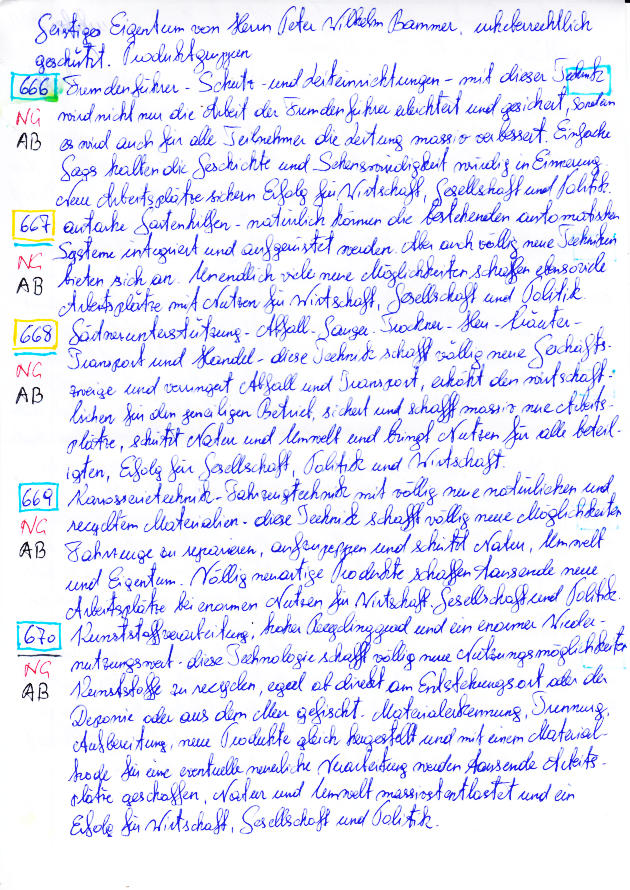 Geistiges Eigentum von Herrn Peter Wilhelm Bammer, urheberrechtlich
geschützt. Produktgruppen
666 Fremdenführer - Schutz - und Leiteinrichtungen - mit dieser Technik
NG wird nicht nur die Arbeit der Fremdenführer erleichtert und gesichert, sondern
AB es wird auch für alle Teilnehmer die Leitung massiv verbessert. Einfache
Gags halten die Geschichte und Sehenswürdigkeit würdig in Erinnerung.
Neue Arbeitsplätze sichern Erfolg für Wirtschaft, Gesellschaft und Politik.
667 autarke Gartenhilfen - natürlich können die bestehenden automatischen
NG Systeme integriert und aufgerüstet werden. Aber auch völlig neue Techniken
AB bieten sich an. Unendlich viele neue Möglichkeiten schaffen ebensoviele
Arbeitsplätze mit Nutzen für Wirtschaft, Gesellschaft und Politik
668 Gärtnerunterstützung - Abfall - Sauger - Trockner - Heu - Kräuter -
NG Transport und Handel - diese Technik schafft völlig neue Geschäfts-
AB zweige und verringert Abfall und Transport, erhöht den wirtschaft-
lichen für den jeweiligen Betrieb, sichert und schafft massiv neue Arbeits-
plätze, schützt Natur und Umwelt und bringt Nutzen für alle beteil-
igten, Erfolg für Gesellschaft, Politik und Wirtschaft.
669 Karosserietechnik - Fahrzeugtechnik mit völlig neue natürlichen und
NG recycltem Materialien - diese Technik schafft völlig neue Möglichkeiten
AB Fahrzeuge zu reparieren, aufzupeppen und schützt Natur, Umwelt
und Eigentum. Völlig neuartige Produkte schaffen tausende neue
Arbeitsplätze bei enormen Nutzen für Wirtschaft, Gesellschaft und Politik.
670 Kunststoffverarbeitung; hoher Recyclinggrad und ein enormer Wieder-
NG nutzungswert - diese Technologie schafft völlig neue Nutzungsmöglichkeiten
AB Kunststoffe zu recyclen, egal ob direkt am Entstehungsort oder der
Deponie oder aus dem Meer gefischt. Materialerkennung, Trennung,
Aufbereitung, neue Produkte gleich hergestellt und mit einem Material-
kode für eine eventuelle neuerliche Verarbeitung werden tausende Arbeits-
plätze geschaffen, Natur und Umwelt massivst entlastet und ein
Erfolg für Wirtschaft, Gesellschaft und Politik.